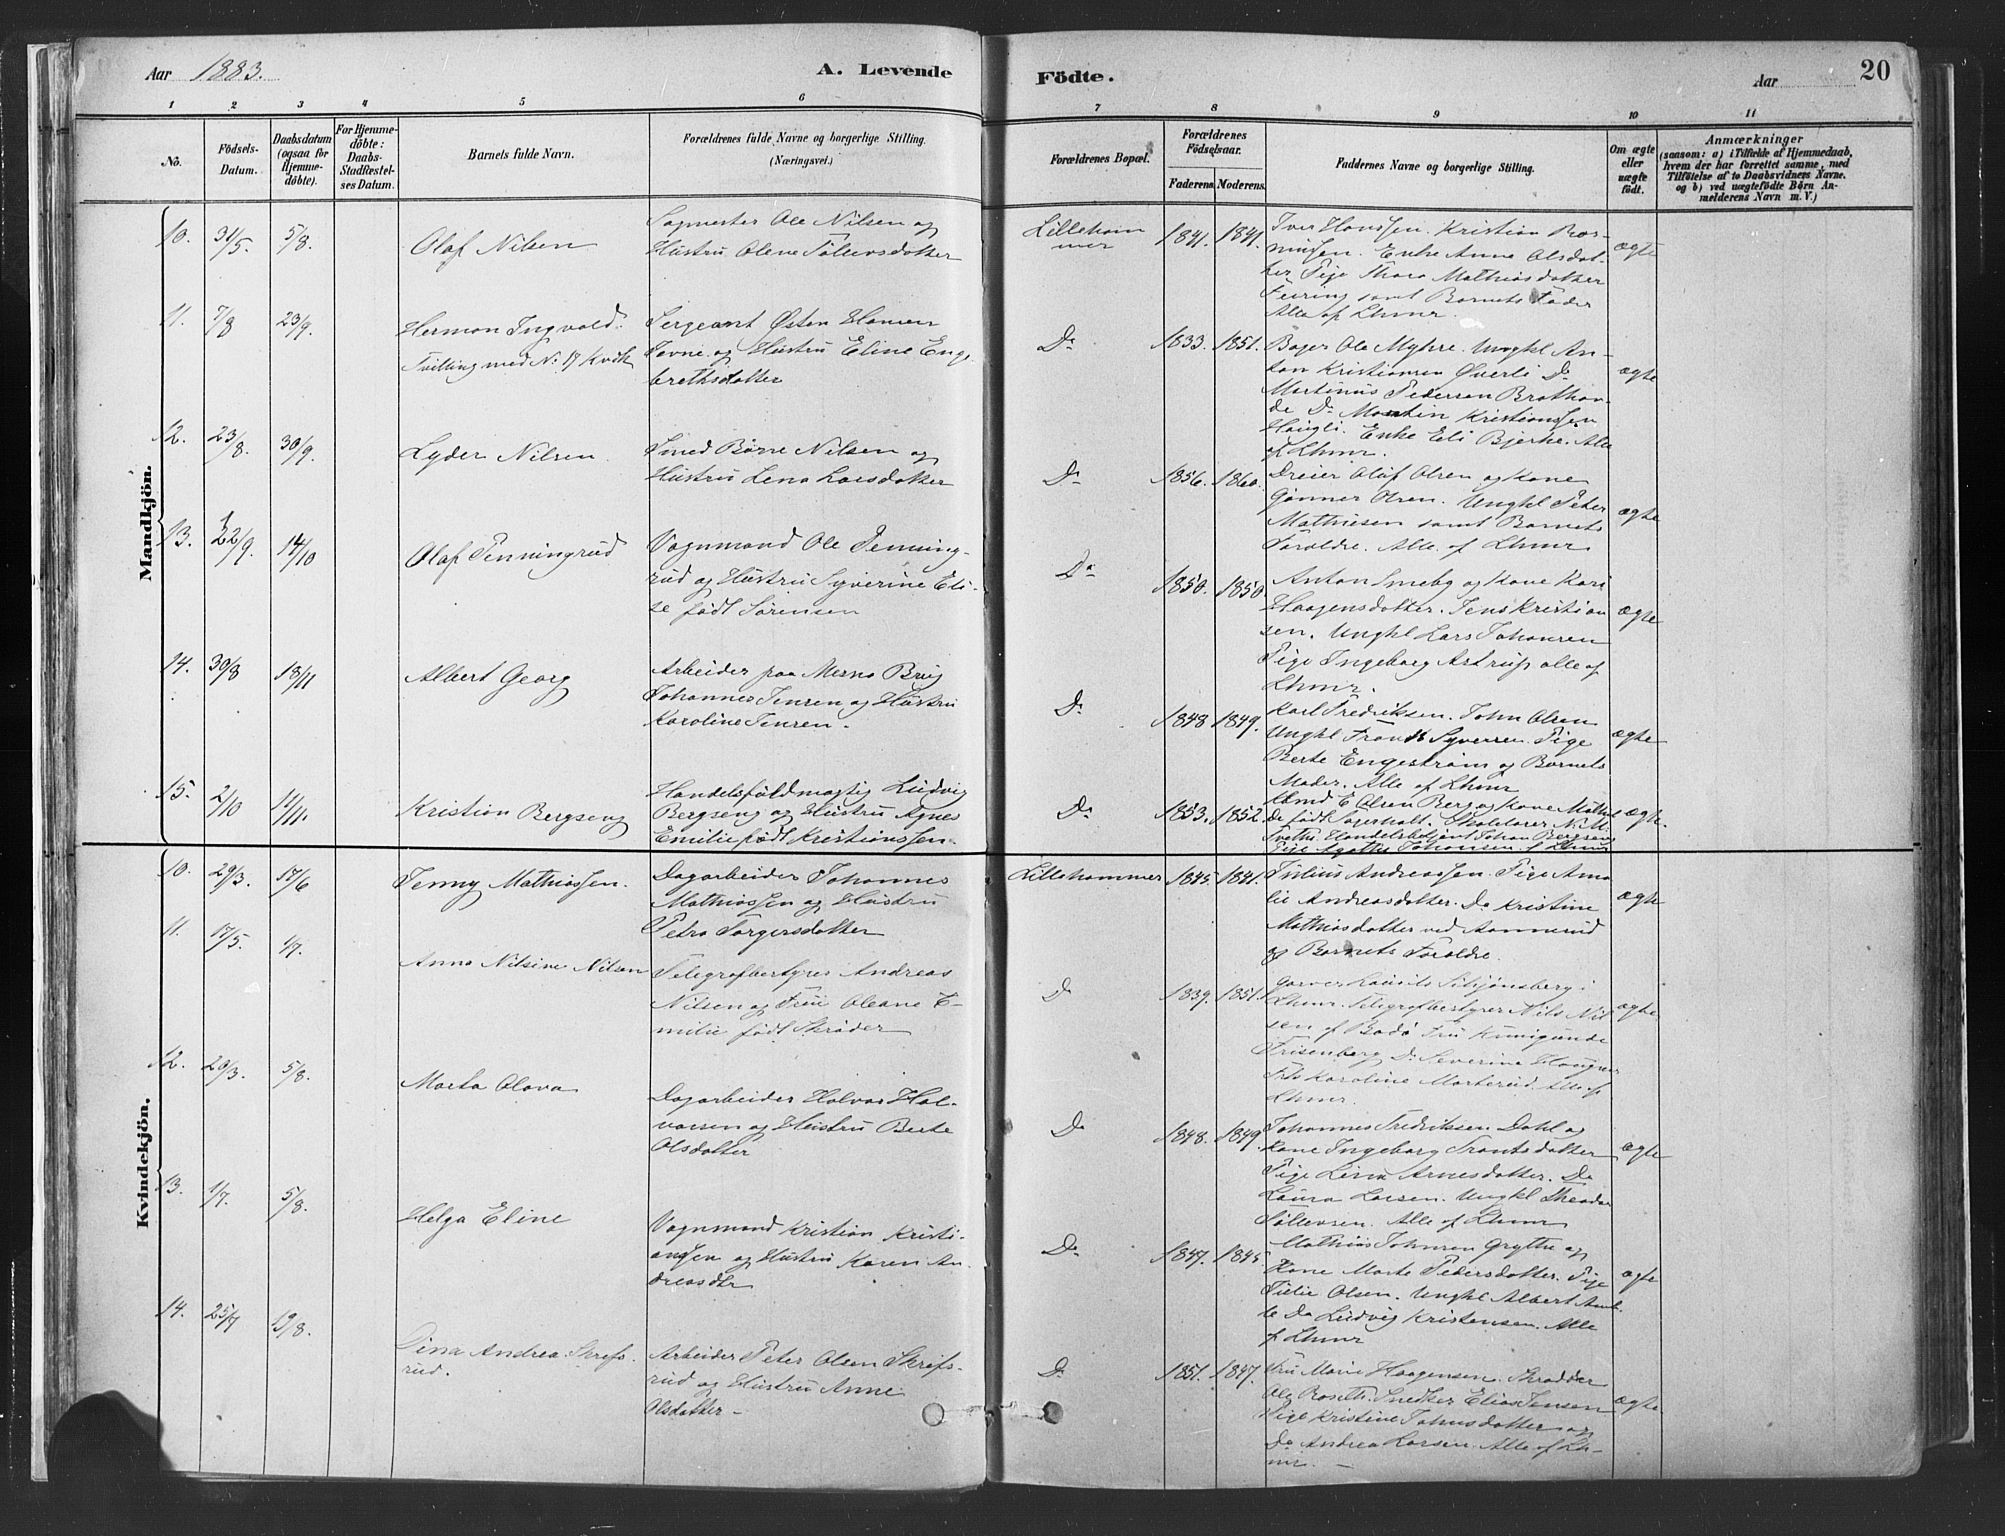 Aar 1883.
A. Levende
Födte.
Aar
20
1 2 3 4 5 6 7 8 9 10 11
No.
Födsels-Datum.
Daabsdatum (ogsaa for Hjemme-döbte).
For Hjemme-döbte: Daabs-Stadfæstel-ses Datum.
Barnets fulde Navn.
Forældrenes fulde Navne og borgerlige Stilling.
(Næringsvei.)
Forældrenes Bopæl.
Forældrenes Födselsaar.
Faderens. Moderens.
Faddernes Navne og borgerlige Stilling.
Om ægte eller uægte födt.
Anmærkninger
(saasom: a) i Tilfælde af Hjemmedaab,
hvem der har forrettet samme, med
Tilföielse af to Daabsvidners Navne,
og b) ved uægtefödte Börn An-
melderens Navn m. V.)
Mandkjön.
10. 31/5 5/8. Olaf Nilsen
Sagmester Ole Nilsen og
Hustru Olene Tollevsdatter
Lilleham
mer
1841. 1841.
Iver Hanssen. Kristian Ras-
mussen. Enke Anna Olsdat-
ter Pige Thora Mathiasdatter
Feiring samt Barnets Fader
Alle af Lhmr.
ægte
11. 7/8 23/9. Herman Ingvald.
Tvilling med No 17 Kvik
Sergeant Østen Hansen
Tovne og Hustru Eline Enge
brethsdatter
Do 1833. 1851.
Bager Ole Myhre. Ungkl An-
ton Kristiansen Øverli Do
Martinus Pedersen Brathau-
de Do Martin Kristianssen
Haugli. Enke Eli Bjerke. Alle
af Lhmr.
ægte
12. 23/8. 30/9. Lyder Nilsen.
Smed Børre Nilsen og
Hustru Lena Larsdatter
Do 1856. 1860.
Dreier Oluf Olsen og Kone
Gunner Olsen. Ungkl Peter
Mathiesen samt Barnets
Foraldre. Alle af Lhmr
ægte
13. 22/9. 14/10 Olaf Penningrud
Vognmand Ole Penning-
rud og Hustru Syverine Eli-
se født Sørensen
Do 1850. 1850
Anton Smeby og Kone Kari
Haagensdatter. Jens Kristian
sen. Ungkl Lars Johansen
Pige Ingeborg Astrup alle af
Lhmr.
ægte
14. 30/8 18/11 Albert Georg
Arbeider paa Mesna Brug
Johannes Jensen og Hustru
Karoline Jensen.
Do 1848 1849.
Karl Fredriksen. John Olsen
Ungkl Frants Syversen Pige
Berte Engestrøm og Barnets
Moder. Alle af Lhmr
ægte
15. 2/10 11/11. Kristian Bergseng
Handelsfuldmægtig Ludvig
Bergseng og Hustru Agnes
Emilie født Kristianssen.
Do 1853. 1852.
E Olsen Berg og Kone Mathil
de født Skolelærer N. M.
Handelsbetjent Johan Bergseng
Pige Agathe Johansen af Lhmr
ægte.
Kvindekjön.
10. 29/3. 17/6 Jenny Mathiassen.
Dagarbeider Johannes
Mathiassen og Hustru
Petra Torgersdatter
Lillehammer 1845. 1841.
Julius Andreassen. Pige Ama
lie Andreasdatter. Do Kristine
Mathiasdatter ved Aannerud
og Barnets Foraldre.
ægte
11. 17/5. 1/7. Anna Nilsine Nilsen
Telegrafbestyrer Andreas
Nilsen og Frue Oleane E-
milie født Skrøder
Do 1839. 1851.
Garver Laurits Siljunsberg i
Lhmr. Telegrafbestyrer Nils Nil
sen af Bodø Fru Kunigunde
Frisenberg Do Severine Haugner
Frk Karoline Morterud. Alle af
Lhmr.
ægte
12. 29/3. 5/8. Marta Olava
Dagarbeider Halvor Hal-
vorsen og Hustru Berte
Olsdatter
Do 1848. 1849.
Johannes Fredriksen Dahl og
Kone Ingeborg Frantsdatter
Pige Lina Arnesdatter. Do
Laura Larsen. Ungkl Theodor
Tollevsen. Alle af Lhmr
ægte
13. 1/7. 5/8. Helga Eline
Vognmand Kristian Kristi-
ansen og Hustru Karen An-
dreasdtr
Do 1847. 1845.
Mathias Johnsen Grytte og
Kone Marte Pedersdatter. Pige
Julie Olsen. Ungkl Albert Aml
te Do Ludvig Kristensen. Alle
af Lhmr
ægte
14. 25/7 19/8. Dina Andrea Skrefs-
rud.
Arbeider Peter Olsen Skrefs-
rud og Hustru Anne
Olsdatter -
Do 1851. 1847.
Fru Marie Haagensen. Skrædder
Ole Roseth. Snedker Elias Jensen
Pige Kristine Johnsdatter og
Do Andrea Larsen. Alle af Lh-
mr. -
ægte.